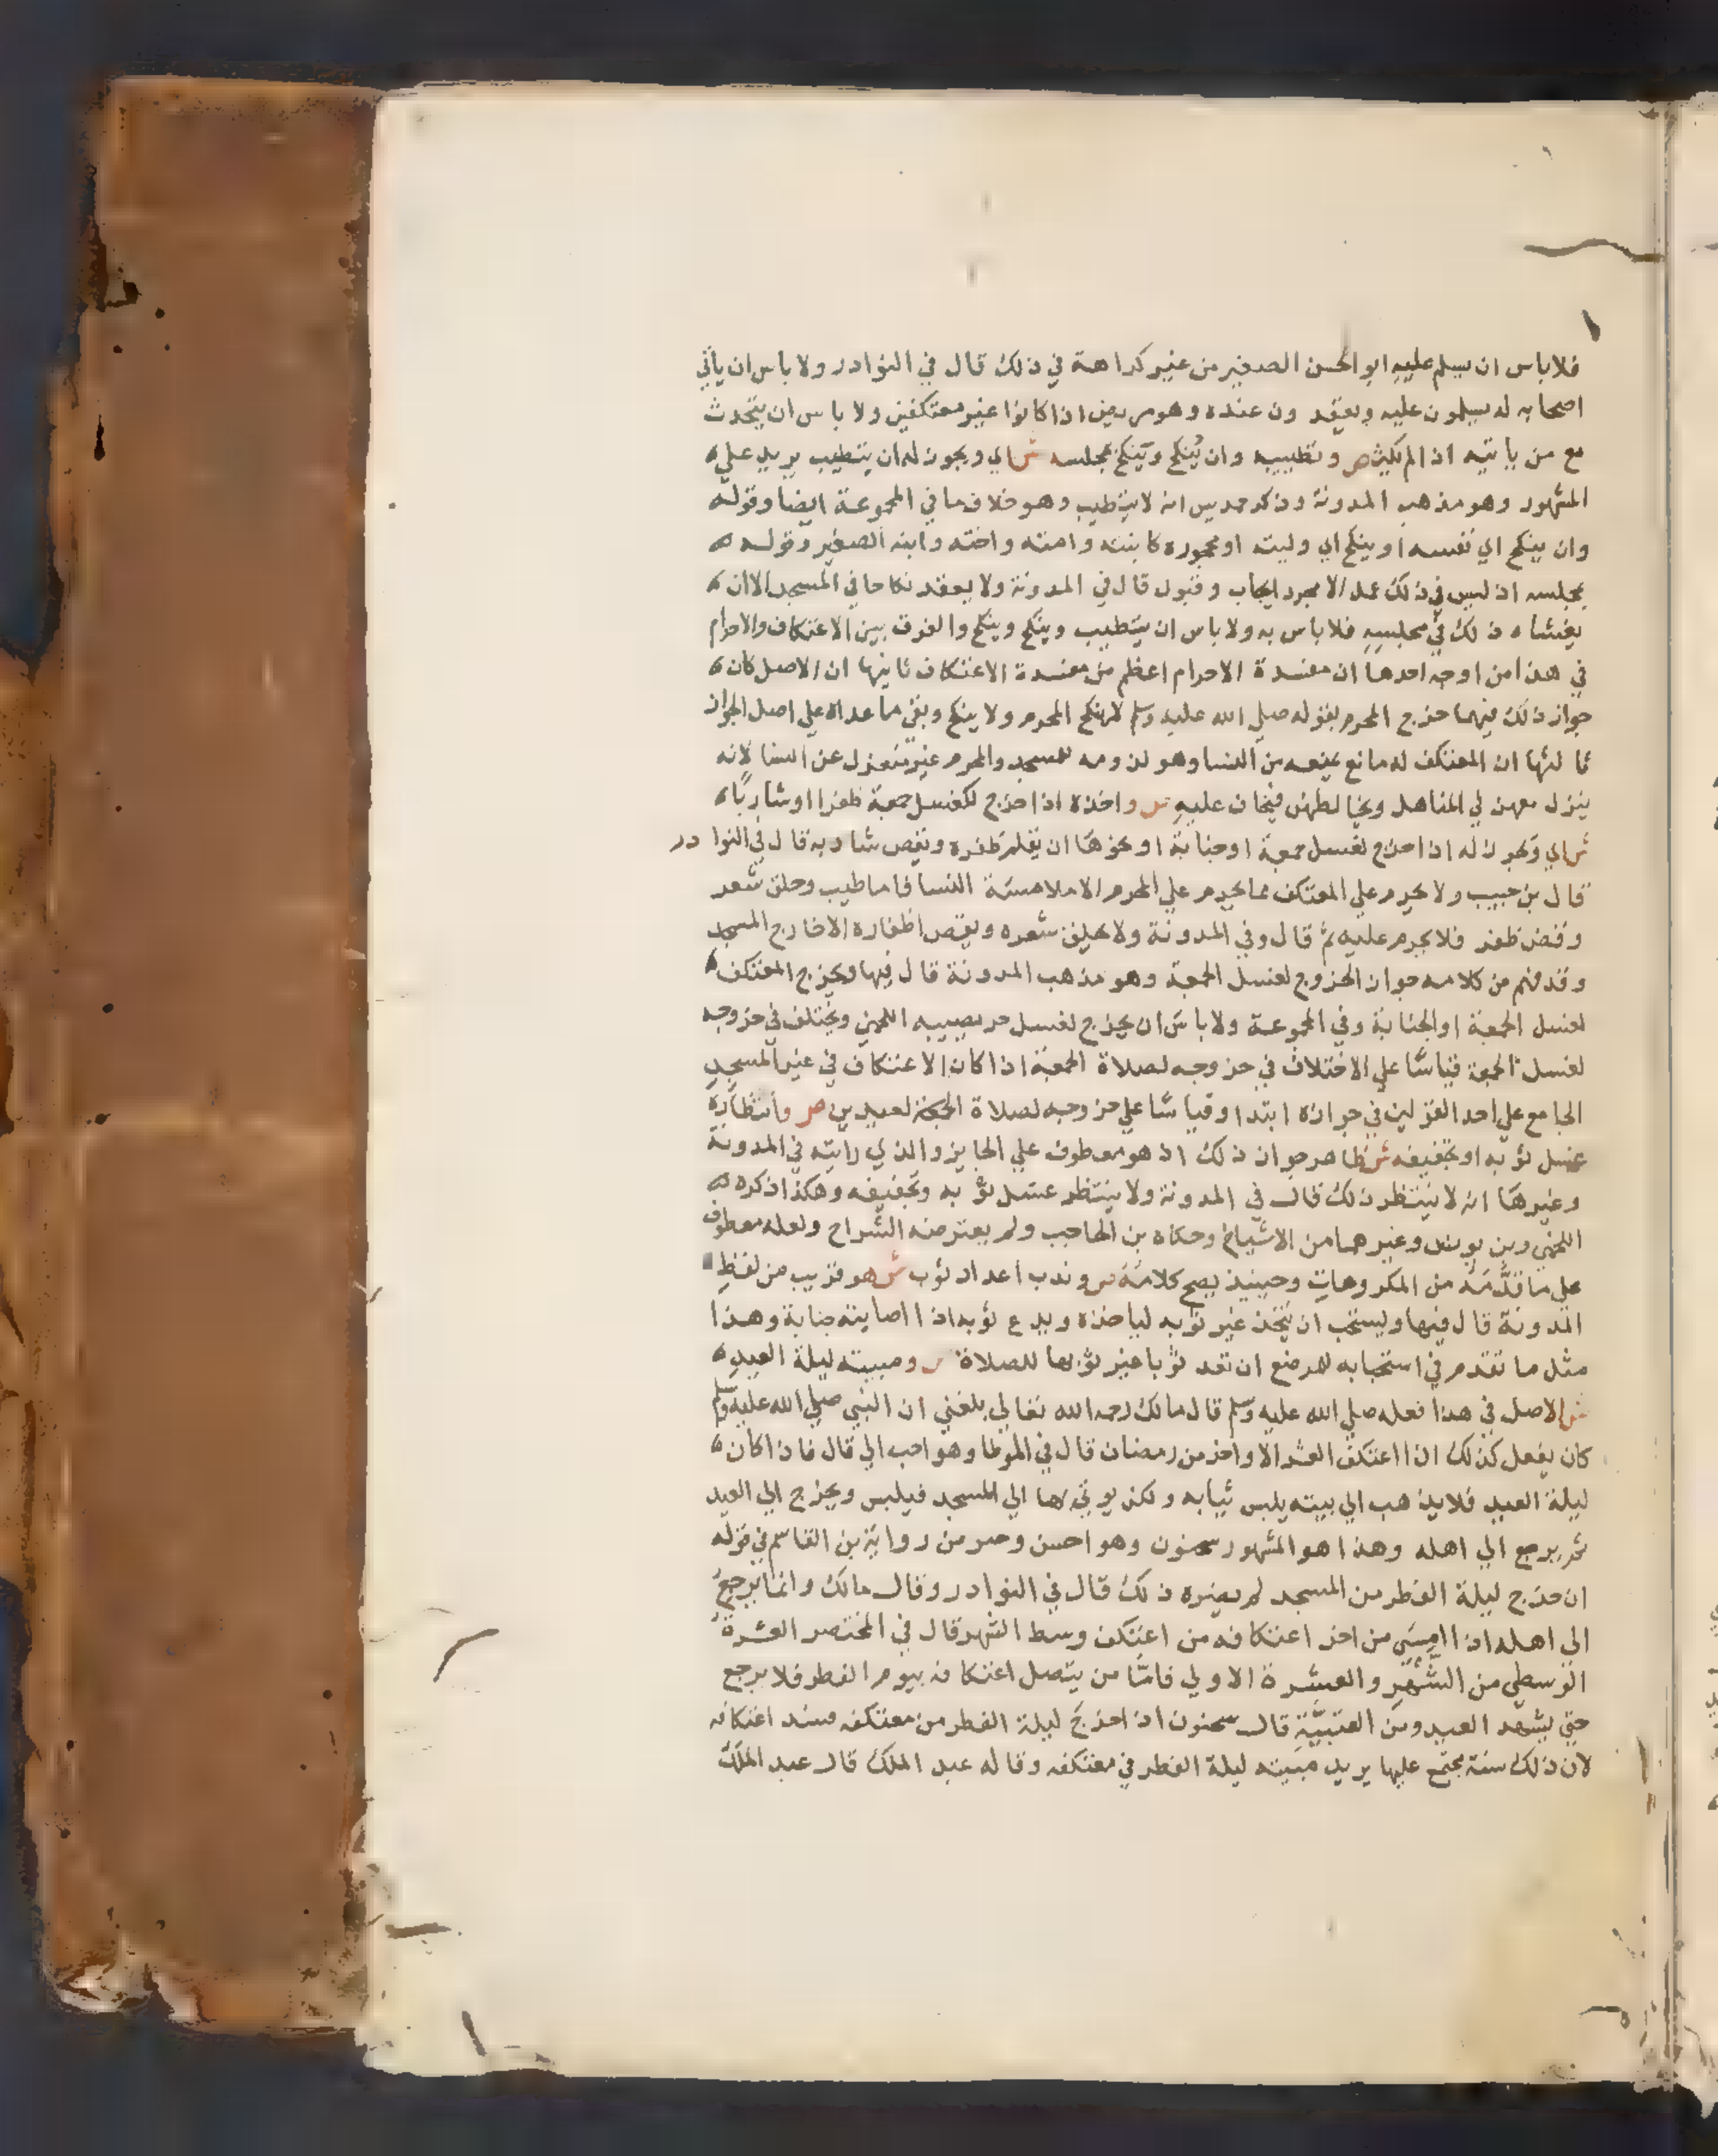 فلا باس ان يسلم عليه ابو الحسن الصغير من غير كراهة في ذلك قال في النوادر ولا باس ان يأتي
اصحابه له يسلمون عليه ويقعدون عنده وهو مريض اذا كانوا غير معتكفين ولا باس ان يتحدث
مع من ياتيه اذا لم يكثر ص وتطييبه وان يُنكح ويَنكح بمجلسه ش اي ويجوز له ان يتطيب يريد علي
المشهور وهو مذهب المدونة وذكر حمديس انه لا يتطيب وهو خلاف ما في المجموعة ايضا وقوله
وان ينكح اي نفسه او ينكح اي وليته او محجوره كابنته وامته واخته وابنه الصغير وقوله
بمجلسه اذ ليس في ذلك عمل الا مجرد ايجاب وقبول قال في المدونة ولا يعقد نكاحا في المسجد الا ان
يغشاه ذلك في مجلسه فلا باس به ولا باس ان يتطيب وينكح وينكح والفرق بين الاعتكاف والاحرام
في هذا من اوجه احدها ان مفسدة الاحرام اعظم من مفسدة الاعتكاف ثانيها ان الاصل كان
جواز ذلك فيهما خرج المحرم بقوله صلي الله عليه وسلم لا ينكح المحرم ولا ينكح وبقي ما عداه علي اصل الجواز
ثالثها ان المعتكف له مانع يمنعه من النسا وهو لزومه للمسجد والمحرم غير منعزل عن النسا لانه
ينزل معهن في المناهل ويخالطهن فيخاف عليه ص واخذه اذا خرج لكغسل جمعة ظفرا او شاربًا
ش اي ويجوز له اذا خرج لغسل جمعة او جنابة او نحوها ان يقلم ظفره ويقص شاربه قال في النوادر
قال بن حبيب ولا يحرم علي المعتكف مما يحرم علي المحرم الا ملامسة النسا فاما طيب وحلق شعر
وقص ظفر فلا يحرم عليه ثم قال وفي المدونة ولا يحلق شعره ويقص اظفاره الا خارج المسجد
وقد فهم من كلامه جواز الخروج لغسل الجمعة وهو مذهب المدونة قال فيها ويخرج المعتكف
لغسل الجمعة او الجنابة وفي المجموعة ولا باس ان يخرج لغسل حر يصيبه اللخمي ويختلف في خروجه
لغسل الجمعة قياسًا علي الاختلاف في خروجه لصلاة الجمعة اذا كان الاعتكاف في غير المسجد
الجامع علي احد القولين في جوازه ابتدا وقياسًا علي خروجه لصلاة الجمعة لعيدين ص وانتظاره
غسل ثوبه او تجفيفه ش ظاهر جواز ذلك اذ هو معطوف علي الجايز والذي رايته في المدونة
وغيرها انه لا ينتظر ذلك قال في المدونة ولا ينتظر غسل ثوبه وتجفيفه وهكذا ذكره
اللخمي وبن يونس وغيرهما من الاشياخ وحكاه بن الحاجب ولم يعترضه الشراح ولعله معطوف
علي ما قدَّمه من المكروهات وحينيذ يصح كلامه ص وندب اعداد ثوب ش هو قريب من لفظ
المدونة قال فيها ويستحب ان يتخذ غير ثوبه لياخذه ويدع ثوبه اذا اصابته جنابة وهذا
مثل ما تقدم في استحبابه للمرضع ان تعد ثوبا غير ثوبها للصلاة ص ومبيته ليلة العيد
ش الاصل في هذا فعله صلي الله عليه وسلم قال مالك رحمه الله تعالي بلغني ان النبي صلي الله عليه وسلم
كان يفعل كذلك اذا اعتكف العشر الاواخر من رمضان قال في الموطا وهو احب الي قال فاذا كان
ليلة العيد فلا يذهب الي بيته يلبس ثيابه ولكن يوتي بها الي المسجد فيلبس ويخرج الي العيد
ثم يرجع الي اهله وهذا هو المشهور سحنون وهو احسن من رواية بن القاسم في قوله
ان خرج ليلة الفطر من المسجد لم يضره ذلك قال في النوادر وقال مالك وانما يرجع
الي اهله اذا امسي من اخر اعتكافه من اعتكف وسط الشهر قال في المختصر العشرة
الوسطي من الشهر والعشرة الاولي فامّا من يتصل اعتكافه بيوم الفطر فلا يرجع
حتي يشهد العيد ومن العتبية قال سحنون اذا خرج ليلة الفطر من معتكفه فسد اعتكافه
لان ذلك سنة مجتمع عليها يريد مبيته ليلة الفطر في معتكفه وقاله عبد الملك قال عبد الملك